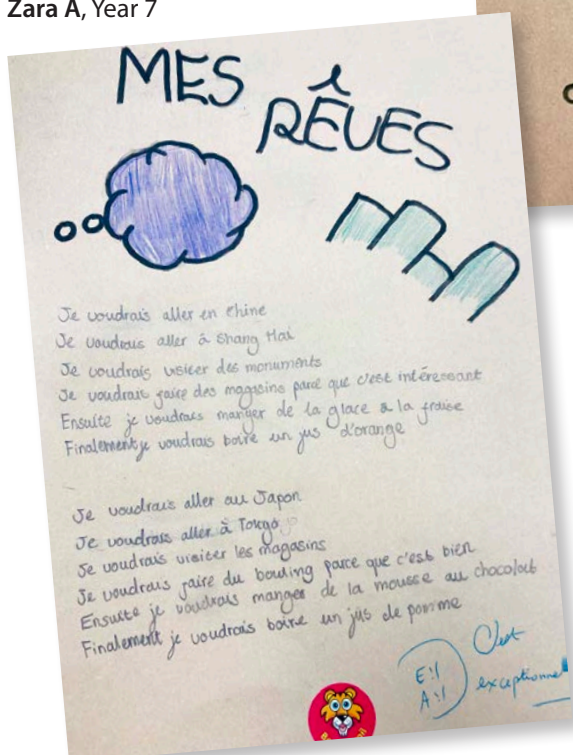 Zara A, Year 7
MES
RÊVES
Je voudrais aller en Chine
Je voudrais aller à Shang Hai
Je voudrais visiter des monuments
Je voudrais faire des magasins parce que c'est intéressant
Ensuite je voudrais manger de la glace à la fraise
Finalement je voudrais boire un jus d'orange
Je voudrais aller au Japon
Je voudrais aller à Tokyo
Je voudrais visiter les magasins
Je voudrais faire du bowling parce que c'est bien
Ensuite je voudrais manger de la mousse au chocolat
Finalement je voudrais boire un jus de pomme
E:1
A:1
C'est
exceptionnel